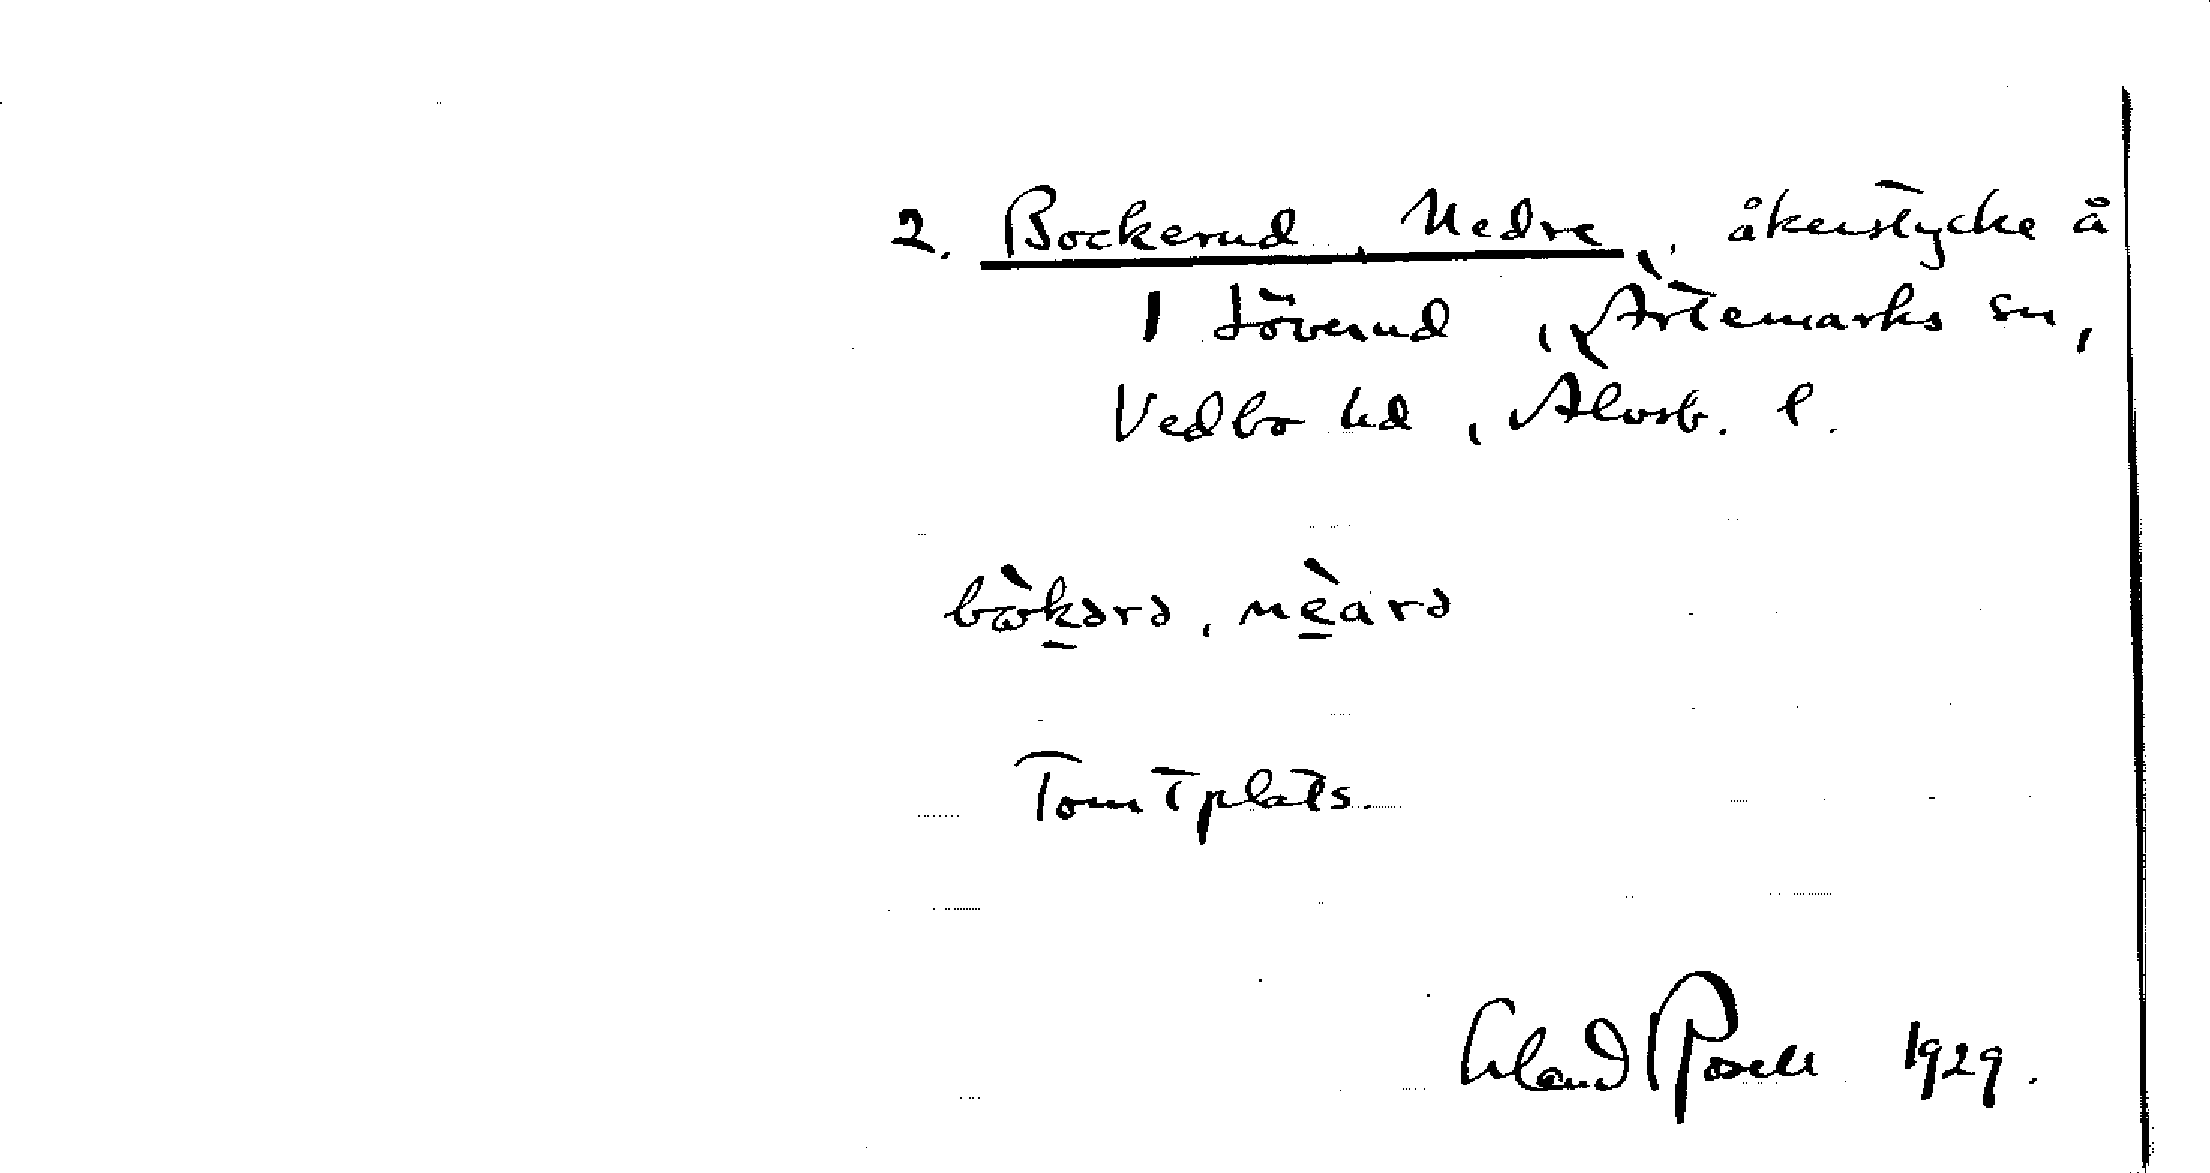 2. Bockerud, Nedre, åkerstycke å
1 Töverud, Ärtemarks sn,
Vedbo hd, Älvsb. l.
bòkərə, nèarə
Tomtplats.
Erland Rosell 1929.